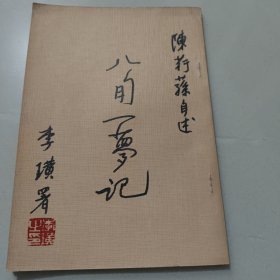 陳荇蓀自述
八旬一夢記
李璜署